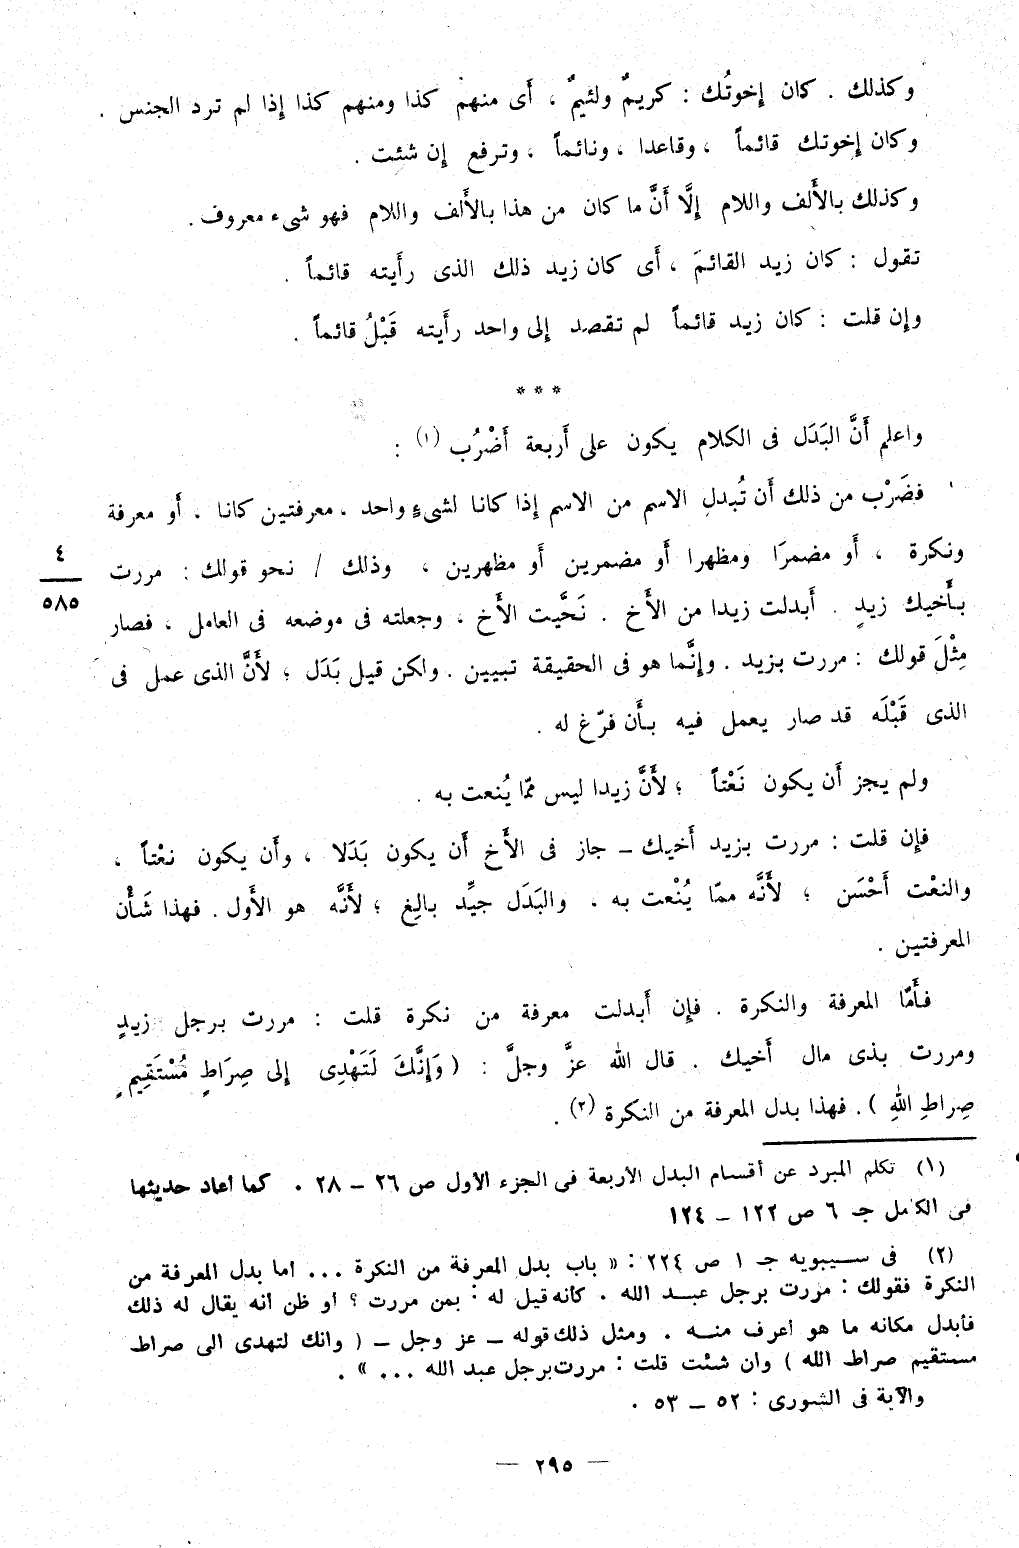 وكذلك . كان إخوتُك : كريمٌ ولئيمٌ ، أَى منهم كذا ومنهم كذا إذا لم ترد الجنس .
وكان إخوتك قائماً ، وقاعدا ، ونائماً ، وترفع إن شئت .
وكذلك بالأَلف واللام إلَّا أَنَّ ما كان من هذا بالأَلف واللام فهو شىء معروف .
تقول : كان زيد القائمَ ، أَى كان زيد ذلك الذى رأَيته قائماً .
وإن قلت : كان زيد قائماً لم تقصد إلى واحد رأَيته قَبْلُ قائماً .
* * *
واعلم أَنَّ البَدَل فى الكلام يكون على أَربعة أَضْرُب (١) :
فضَرْب من ذلك أَن تُبدلِ الاسم من الاسم إذا كانا لشىءٍ واحد . معرفتين كانا ، أَو معرفة
ونكرة ، أَو مضمرَا ومظهرا أَو مضمرين أَو مظهرين ، وذلك / نحو قولك : مررت
٤
٥٨٥
بأَخيك زيدٍ . أَبدلت زيدا من الأَخ . نَحَّيت الأَخ ، وجعلته فى موضعه فى العامل ، فصار
مِثْلَ قولك : مررت بزيد . وإنَّما هو فى الحقيقة تبيين . ولكن قيل بَدَل ؛ لأَنَّ الذى عمل فى
الذى قَبْلَه قد صار يعمل فيه بأَن فرّغ له .
ولم يجز أَن يكون نَعْتاً ؛ لأَنَّ زيدا ليس ممّا يُنعت به .
فإن قلت : مررت بزيد أَخيك – جاز فى الأَخ أَن يكون بَدَلا ، وأَن يكون نعْتاً ،
والنعْت أَحْسَن ؛ لأَنَّه ممّا يُنْعت به . والبَدَل جيِّد بالِغ ؛ لأَنَّه هو الأَول . فهذا شَأْن
المعرفتين .
فأَمّا المعرفة والنكرة . فإن أَبدلت معرفة من نكرة قلت : مررت برجل زيدٍ
ومررت بذى مال أَخيك . قال الله عزَّ وجلَّ : ( وَإِنَّكَ لَتَهْدِى إلى صِرَاطٍ مُسْتَقِيمٍ
صِراطِ اللهِ ) . فهذا بدل المعرفة من النكرة (٢) .
(١) تكلم المبرد عن أقسام البدل الأربعة فى الجزء الأول ص ٢٦ – ٢٨ . كما أعاد حديثها
فى الكامل جـ ٦ ص ١٢٢ – ١٢٤
(٢) فى سيبويه جـ ١ ص ٢٢٤ : « باب بدل المعرفة من النكرة ... أما بدل المعرفة من
النكرة فقولك : مررت برجل عبد الله . كأنه قيل له : بمن مررت ؟ أو ظن أنه يقال له ذلك
فأبدل مكانه ما هو أعرف منه . ومثل ذلك قوله – عز وجل – ( وانك لتهدى الى صراط
مستقيم صراط الله ) وان شئت قلت : مررت برجل عبد الله ... » .
والآية فى الشورى : ٥٢ – ٥٣ .
— ٢٩٥ —